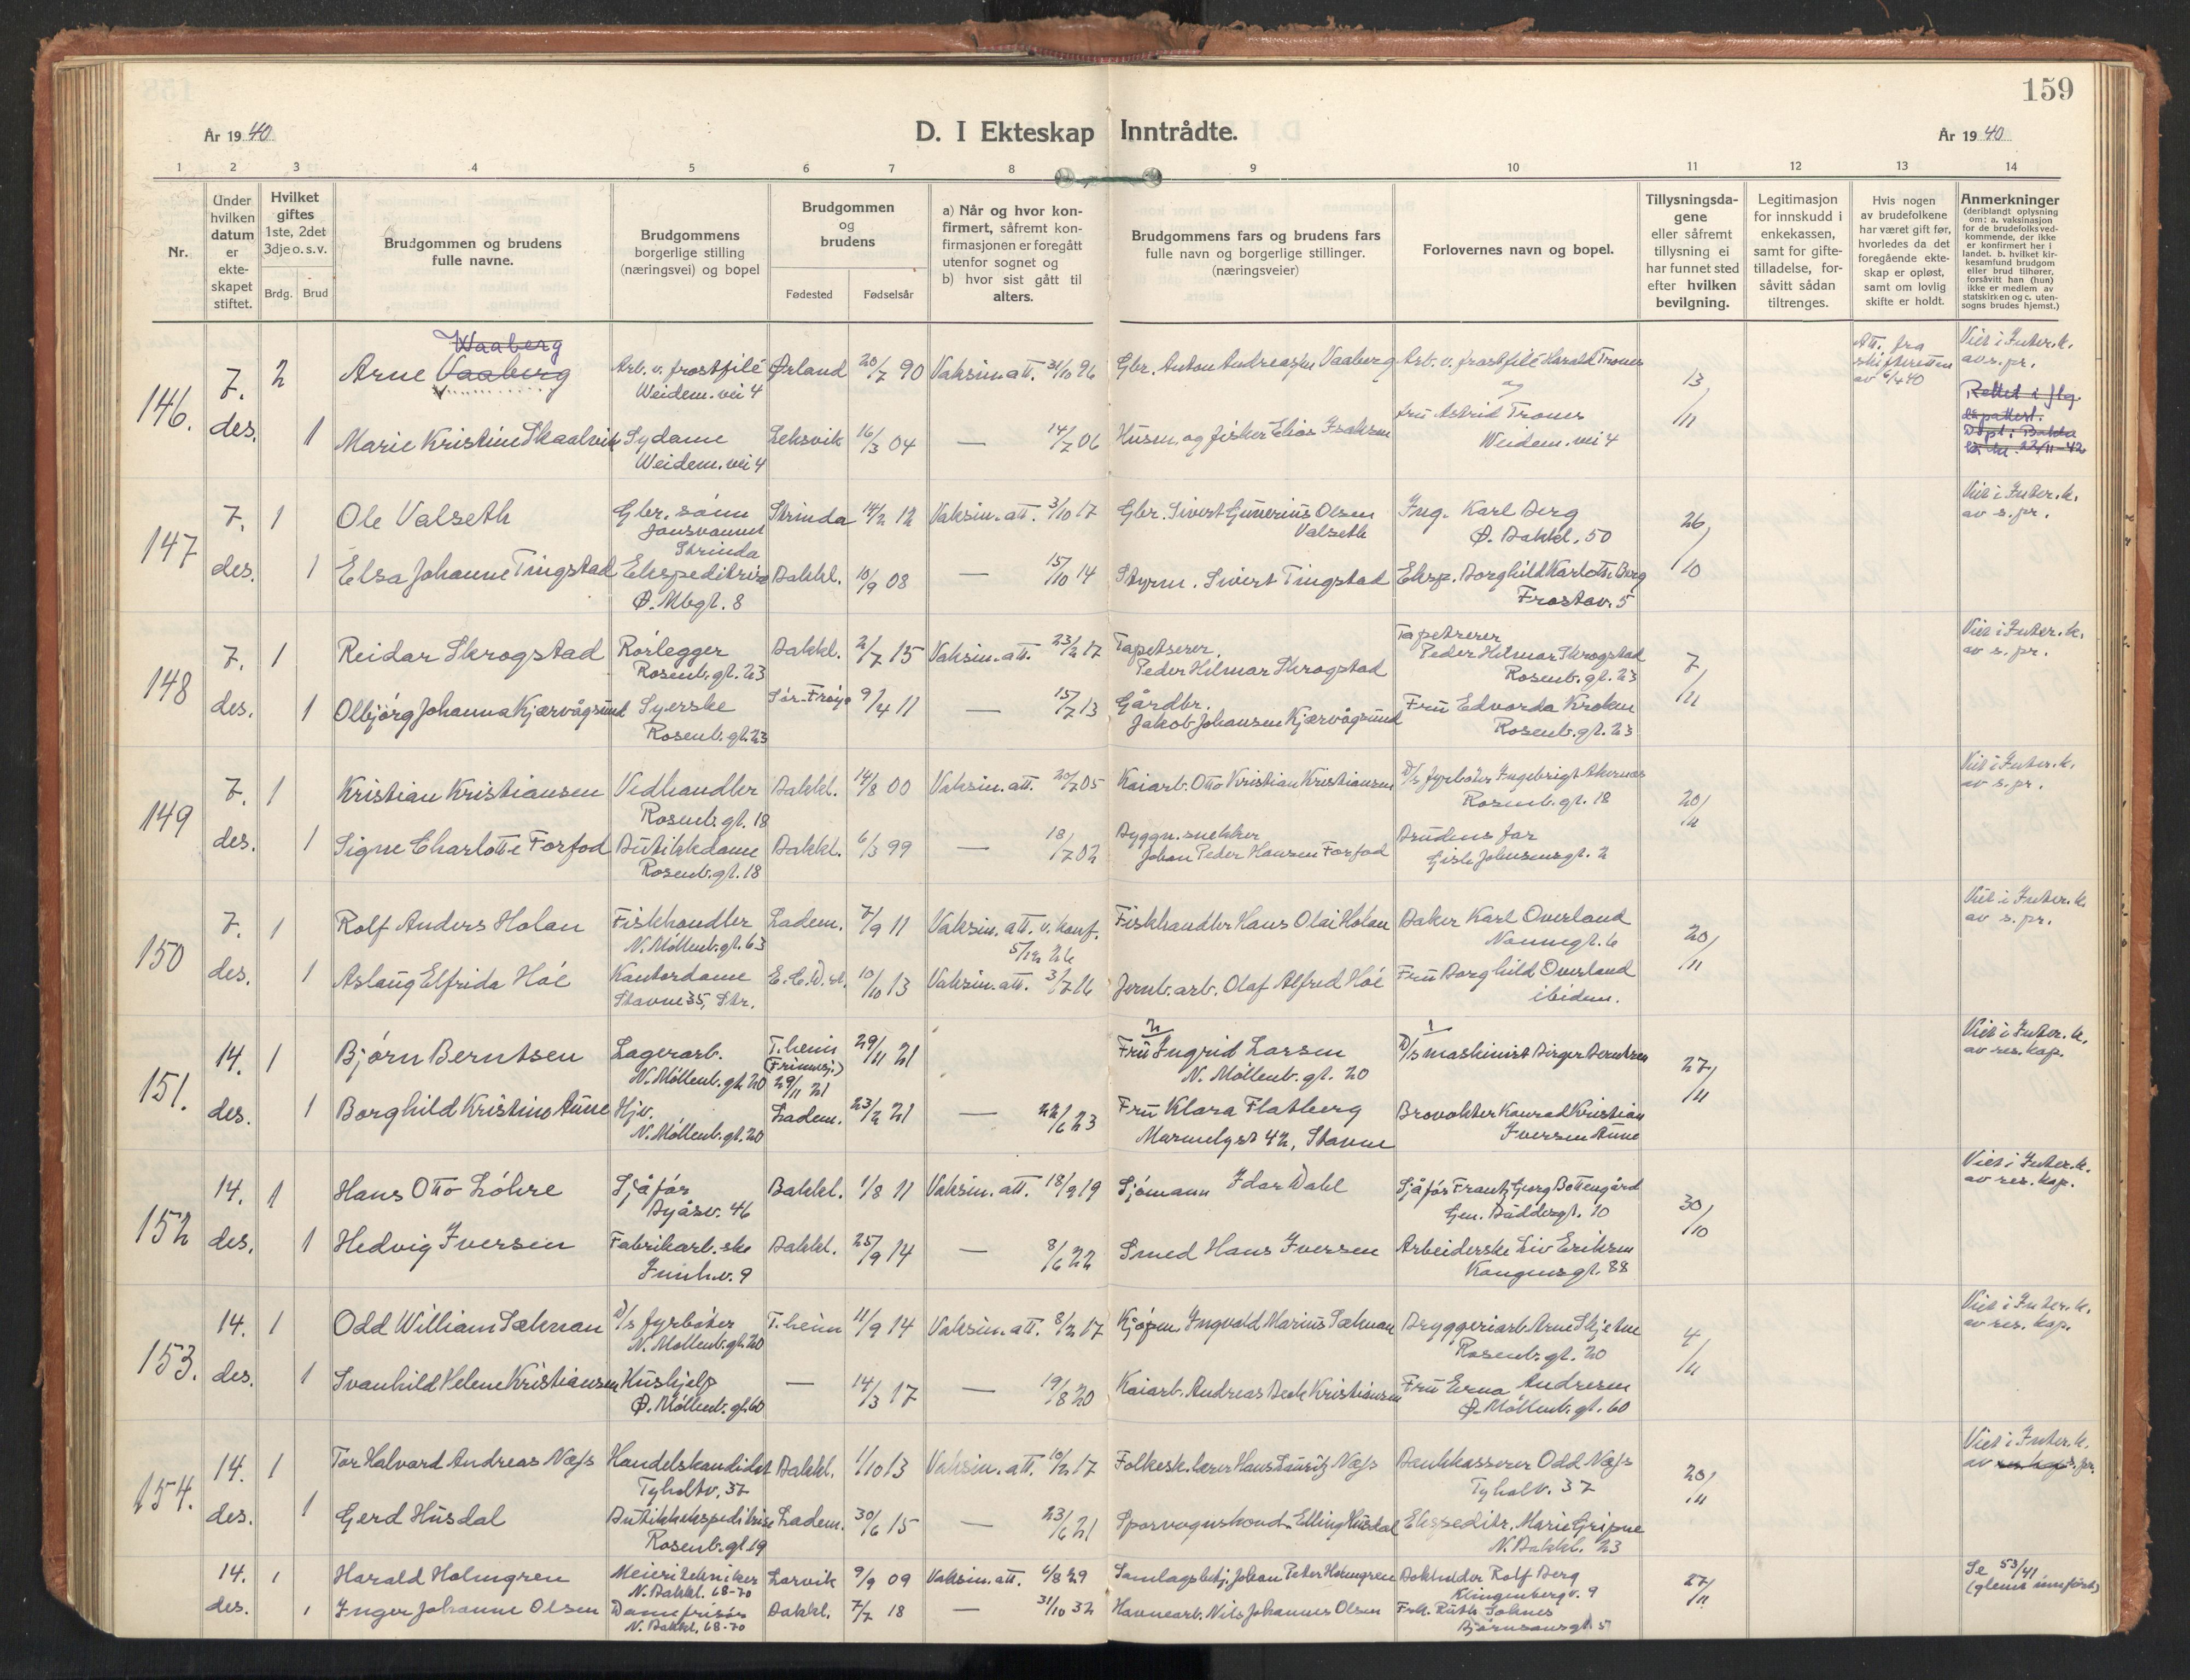 159
År 1940
D. I Ekteskap Inntrådte.
År 1940
1 2 3 4 5 6 7 8 9 10 11 12 13 14
Nr.
Under hvilken datum er ekte- skapet stiftet.
Hvilket giftes 1ste, 2det 3dje o. s. v.
Brdg. Brud
Brudgommen og brudens fulle navne.
Brudgommens borgerlige stilling (næringsvei) og bopel
Brudgommen og brudens
Fødested Fødselsår
a) Når og hvor kon- firmert, såfremt kon- firmasjonen er foregått utenfor sognet og b) hvor sist gått til alters.
Brudgommens fars og brudens fars fulle navn og borgerlige stillinger. (næringsveier)
Forlovernes navn og bopel.
Tillysningsda- gene eller såfremt tillysning ei har funnet sted efter hvilken bevilgning.
Legitimasjon for innskudd i enkekassen, samt for gifte- tilladelse, for- såvitt sådan tiltrenges.
Hvis nogen av brudefolkene har været gift før, hvorledes da det foregående ekte- skap er opløst, samt om lovlig skifte er holdt.
Anmerkninger (deriblandt oplysning om: a. vaksinasjon for de brudefolks ved- kommende, der ikke er konfirmert her i landet. b. hvilket kir- kesamfund brudgom eller brud tilhører, forsåvitt han (hun) ikke er medlem av statskirken og c. uten- sogns brudes hjemst.)
Waaberg
146. 7. 2 Arne Vaaberg Arb. v. frostfilé Ørland 20/7 90 Vaksin. att. 31/10 96 Gbr. Anton Andreassen Vaaberg Arb. v. frostfilé Harald Troens 13/11 Att. fra skifteretten av 6/4 40 Viet i Inter. k. av s. pr.
Weidem. vei 4 og
des. 1 Marie Kristine Skaalvik Sydame Leksvik 16/3 04 — 14/7 06 Husm. og fisker Elias Isaksen fru Astrid Troens
Weidem. vei 4 Weidem. vei 4
Rettet i flg.
23/11-42
147 7. 1 Ole Valseth Gbr. sønn Strinda 14/2 12 Vaksin. att. 3/10 17 Gbr. Sivert Gunerius Olsen Valseth Ing. Karl Berg 26/10 Viet i Inter. k. av s. pr.
Jonsvannet Strinda Ø. Bakkl. 50
des. 1 Elsa Johanne Tingstad Ekspeditrise Bakkl. 10/9 08 — 15/10 14 Styrm. Sivert Tingstad Eksp. Borghild Karlotte Berg
Ø. Mbgt. 8 Frostav. 5
148 7. 1 Reidar Skrogstad Rørlegger Bakkl. 2/7 15 Vaksin. att. 23/2 17 Tapetserer. Peder Hilmar Skrogstad Tapetserer Peder Hilmar Skrogstad 7/11 Viet i Inter. k. av s. pr.
Rosenb. gt. 23 Rosenb. gt. 23
des. 1 Olbjørg Johanna Kjærvågsund Syerske Sør-Frøya 9/4 11 — 15/7 13 Gårdbr. Jakob Johansen Kjærvågsund Fru Edvarda Kroken
Rosenb. gt. 23 Rosenb. gt. 23
149 7. 1 Kristian Kristiansen Vedhandler Bakkl. 14/8 00 Vaksin. att. 20/7 05 Kaiarb. Otto Kristian Kristiansen D/s fyrbøter Ingebrigt Akernes 20/11 Viet i Inter. k. av s. pr.
Rosenb. gt. 18 Rosenb. gt. 18
des. 1 Signe Charlotte Forfod Butikkdame Bakkl. 6/3 99 — 18/7 02 Byggn. snekker Johan Peder Hansen Forfod Brudens far
Rosenb. gt. 18 Gisle Johnsensgt. 2
150 7. 1 Rolf Anders Holan Fiskhandler Ladem. 7/9 11 Vaksin. att. v. konf. 5/12 26 Fiskhandler Hans Olai Holan Baker Karl Overland 20/11 Viet i Inter. k. av s. pr.
N. Møllenb. gt. 63 Nonnegt. 6
des. 1 Aslaug Elfrida Høe Kontordame 10/10 13 Vaksin. att. 3/7 16 Jernb. arb. Olaf Alfred Høe Fru Borghild Overland
Stavne 35, Str. ibidem.
151. 14. 1 Bjørn Berntsen Lagerarb. T.heim 29/11 21 2 Fru Ingrid Larsen 1 D/s maskinist Birger Berntsen 27/11 Viet i Inter. k. av res. kap.
N. Møllenb. gt. 20 (Frimenigh.) 29/11 21 N. Møllenb. gt. 20
des. 1 Borghild Kristine Aune Hjv. Ladem. 23/2 21 — 22/6 23 Fru Klara Flatberg Brovokter Konrad Kristian Iversen Aune
N. Møllenb. gt. 20 Marmelyst 42, Stavne
152 14. 1 Hans Otto Löhre Sjåfør Bakkl. 1/8 11 Vaksin. att. 18/9 19 Sjømann Idar Dahl Sjåfør Frantz Georg Bottengård 30/10 Viet i Inter. k. av res. kap.
Byåsv. 46 Gen. Buddesgt. 10
des. 1 Hedvig Iversen Fabrikarb.ske Bakkl. 25/9 14 — 8/6 22 Smed Hans Iversen Arbeiderske Liv Eriksen
Innh.v. 9 Kongensgt. 88
153. 14. 1 Odd William Sæhnan D/s fyrbøter T.heim 11/9 14 Vaksin. att. 8/2 17 Kjøpm. Ingvald Marius Sæhnan Bryggeriarb. Arne Skjetne 4/11 Viet i Inter. k. av res. kap.
N. Møllenb. gt. 20 Rosenb. gt. 20
des. 1 Svanhild Helene Kristiansen Hushjelp — 14/3 17 — 19/8 20 Kaiarb. Andreas Beck Kristiansen Fru Erna Andresen
Ø. Møllenb. gt. 60 Ø. Møllenb. gt. 60
154. 14. 1 Tor Halvard Andreas Næss Handelskandidat Bakkl. 1/10 13 Vaksin. att. 10/2 17 Folkesk. lærer Hans Lauritz Næss Bankkasserer Odd Næss 20/11 Viet i Inter. k. av res. kap. s. pr.
Tyholtv. 37 Tyholtv. 37
des. 1 Gerd Husdal Butikkekspeditrise Ladem. 30/6 15 — 23/6 21 Sporvognskond. Elling Husdal Ekspeditr. Marie Gripne
Rosenb. gt. 19 N. Bakkl. 23
14. 1 Harald Holmgren Meieritekniker Larvik 9/9 09 Vaksin. att. 6/8 29 Samlagsbetj. Johan Peter Holmgren Bokholder Rolf Berg 27/11 Se 53/41 (glemt innført)
N. Bakkl. 68-70 Klingenbergv. 9
des. 1 Inger Johanne Olsen Damefrisør Bakkl. 7/7 18 — 31/10 32 Havnearb. Nils Johannes Olsen Frk. Ruth Solnes
N. Bakkl. 68-70 Bjørnsonsgt. 5